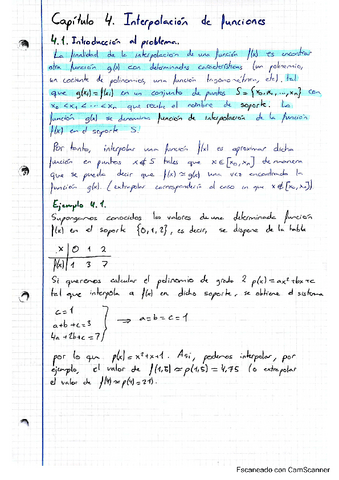 Capítulo 4. Interpolación de funciones
4.1. Introducción al problema.
La finalidad de la interpolación de una función f(x) es encontrar
otra función g(x) con determinadas características (un polinomio,
un cociente de polinomios, una función trigonométrica, etc), tal
que g(xi) = f(xi) en un conjunto de puntos S = {x0, x1, ..., xn} con
x0 < x1 < ... < xn que recibe el nombre de soporte. La
función g(x) se denomina función de interpolación de la función
f(x) en el soporte S.
Por tanto, interpolar una función f(x) es aproximar dicha
función en puntos x ∉ S tales que x ∈ [x0, xn] de manera
que se pueda decir que f(x) ≃ g(x) una vez encontrada la
función g(x). (extrapolar correspondería al caso en que x ∉ [x0, xn])
Ejemplo 4.1.
Supongamos conocidos los valores de una determinada función
f(x) en el soporte {0, 1, 2}, es decir, se dispone de la tabla
x 0 1 2
f(x) 1 3 7
Si queremos calcular el polinomio de grado 2 p(x) = ax²+bx+c
tal que interpola a f(x) en dicho soporte, se obtiene el sistema
c = 1
a+b+c = 3 ⟹ a = b = c = 1
4a + 2b + c = 7
por lo que p(x) = x²+x+1. Así, podemos interpolar, por
ejemplo, el valor de f(1,5) ≃ p(1,5) = 4,75 (o extrapolar
el valor de f(4) ≃ p(4) = 21).
Escaneado con CamScanner